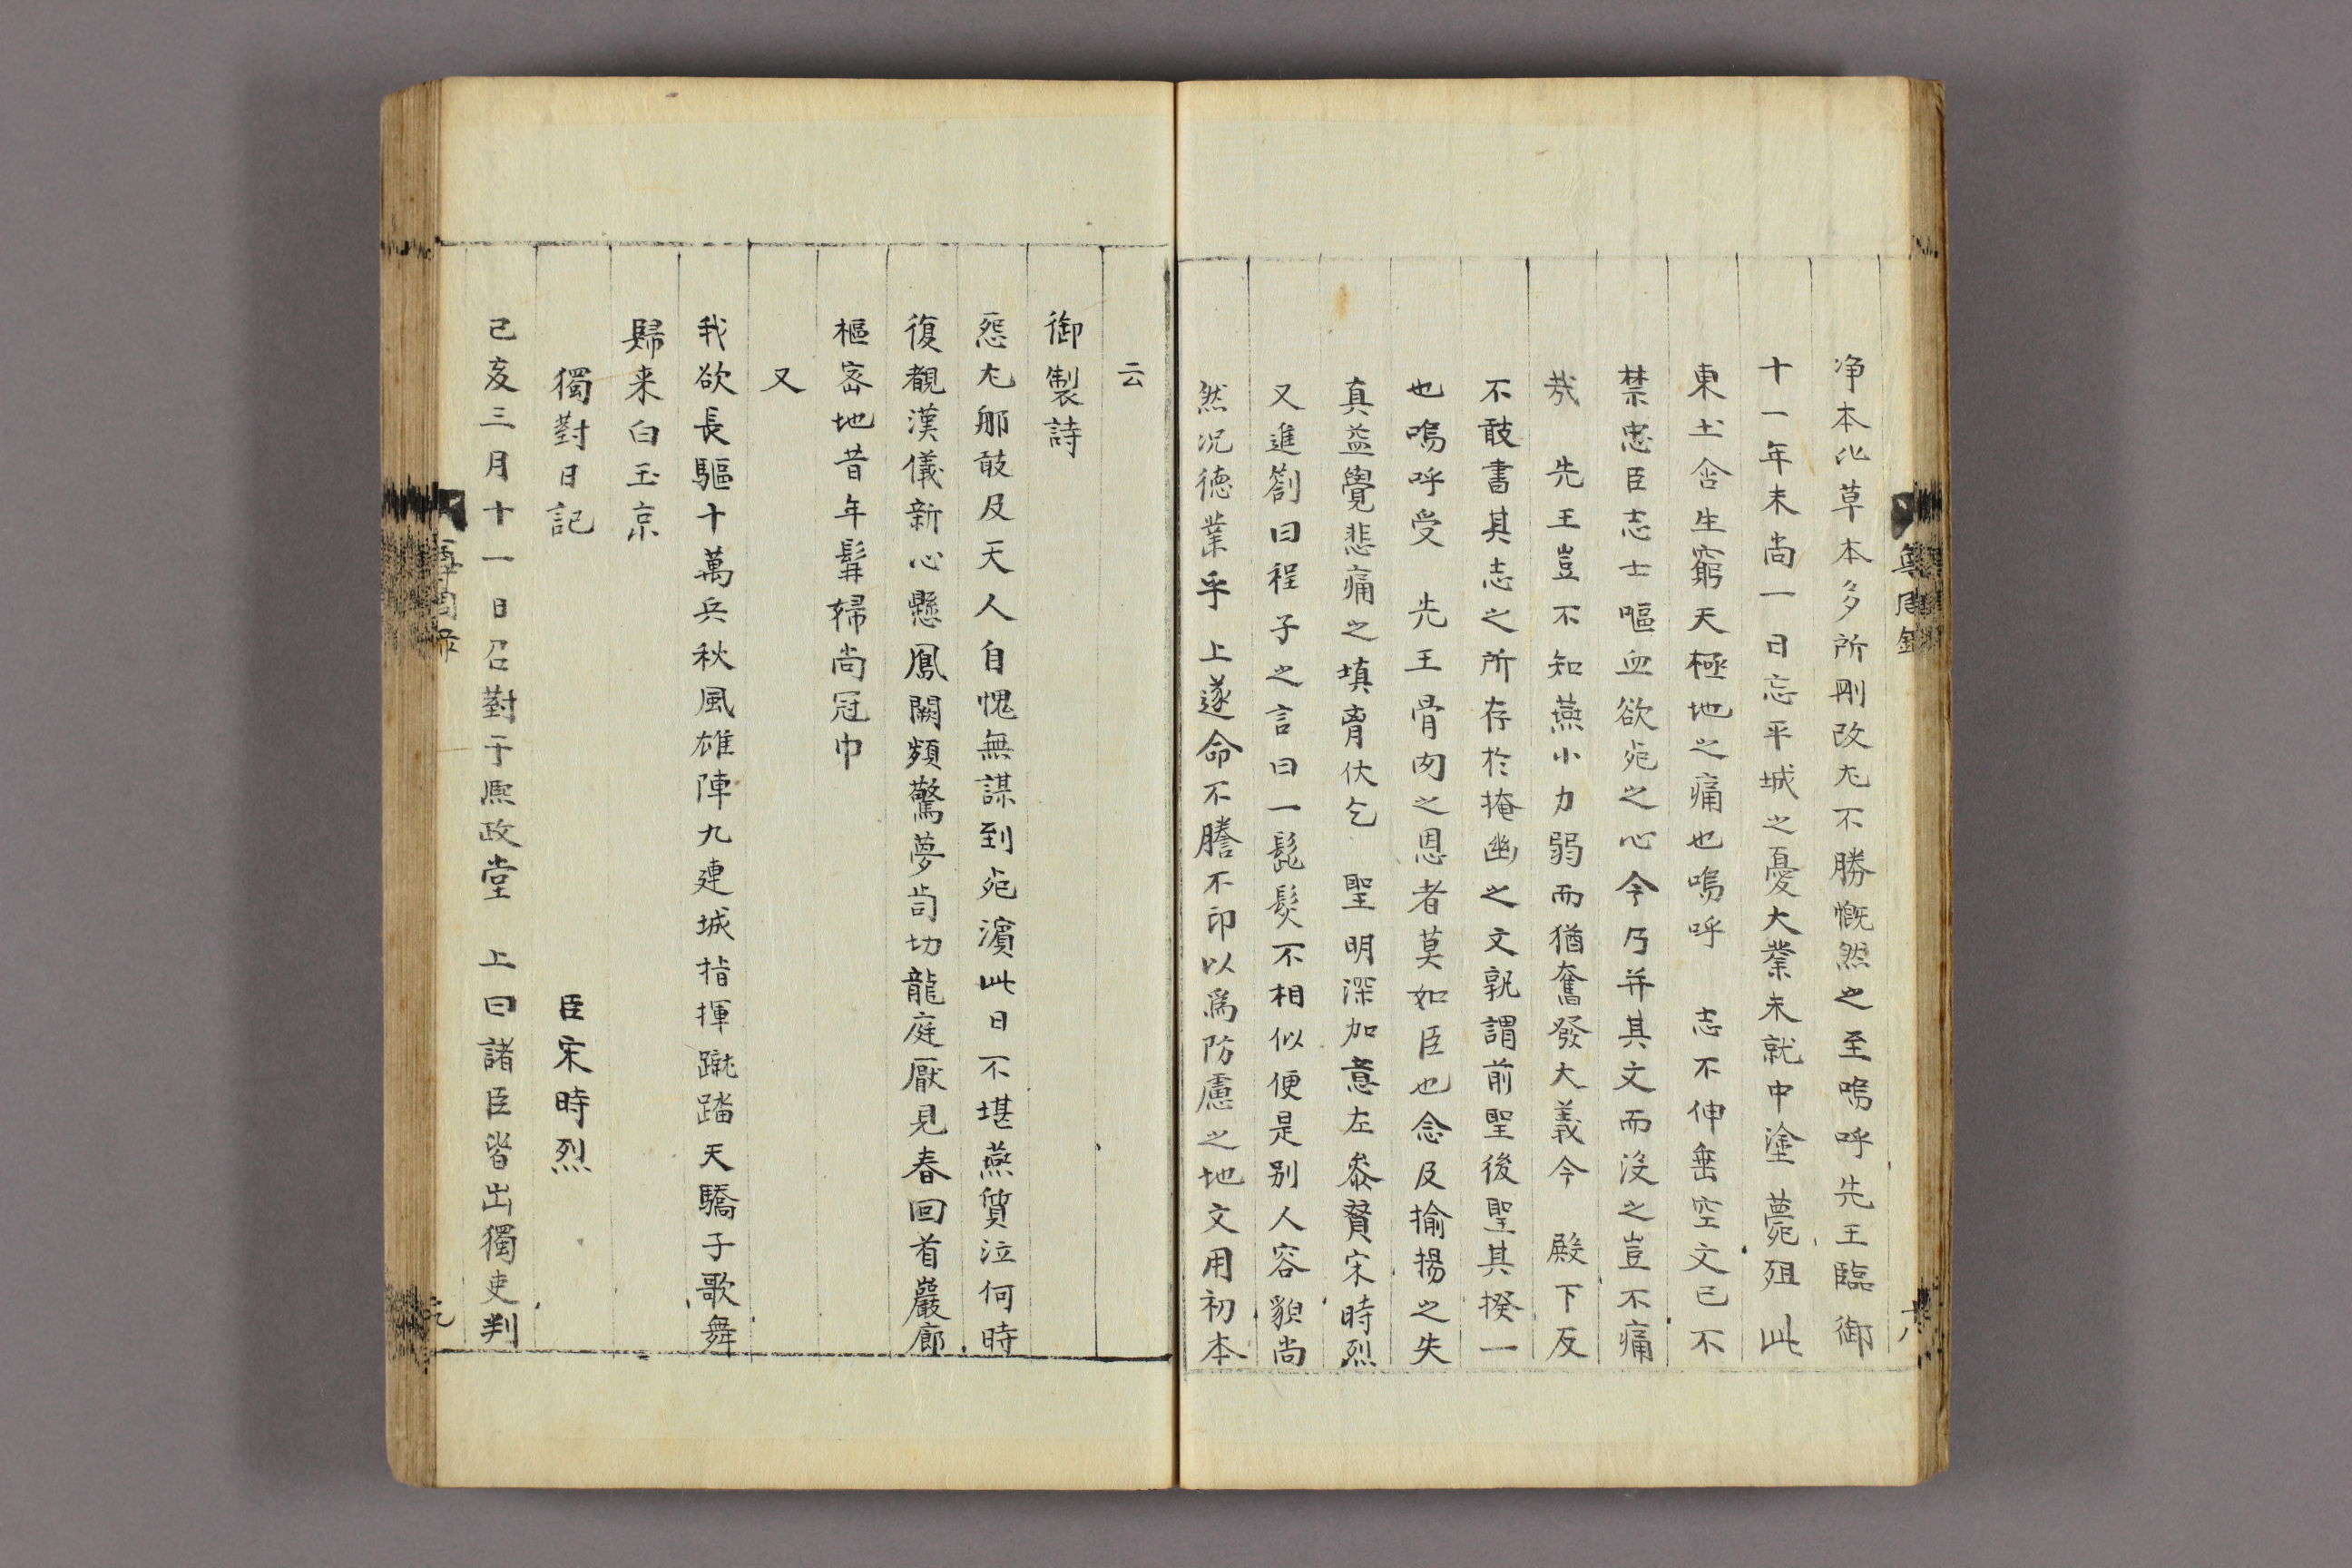 尊周錄
十八
淨本比草本多所刪改尤不勝慨然之至嗚呼先王臨御
十一年未尚一日忘平城之憂大業未就中塗薨殂此
東土含生窮天極地之痛也嗚呼 志不伸垂空文已不
禁忠臣志士嘔血欲死之心今乃并其文而沒之豈不痛
哉 先王豈不知燕小力弱而猶奮發大義今 殿下反
不敢書其志之所存於掩幽之文孰謂前聖後聖其揆一
也嗚呼受 先王骨肉之恩者莫如臣也念及揄揚之失
真益覺悲痛之填膺伏乞 聖明深加意左參贊宋時烈
又進劄曰程子之言曰一髭髮不相似便是別人容貌尚
然況德業乎 上遂命不謄不印以爲防慮之地文用初本
云
御製詩
怨尤那敢及天人自愧無謀到死濱此日不堪燕質泣何時
復覩漢儀新心懸鳳闕頻驚夢齒切龍庭厭見春回首巖廊
樞密地昔年髯婦尚冠巾
又
我欲長驅十萬兵秋風雄陣九連城指揮蹴踏天驕子歌舞
歸来白玉京
獨對日記 臣宋時烈
己亥三月十一日召對于熙政堂 上曰諸臣皆出獨吏判